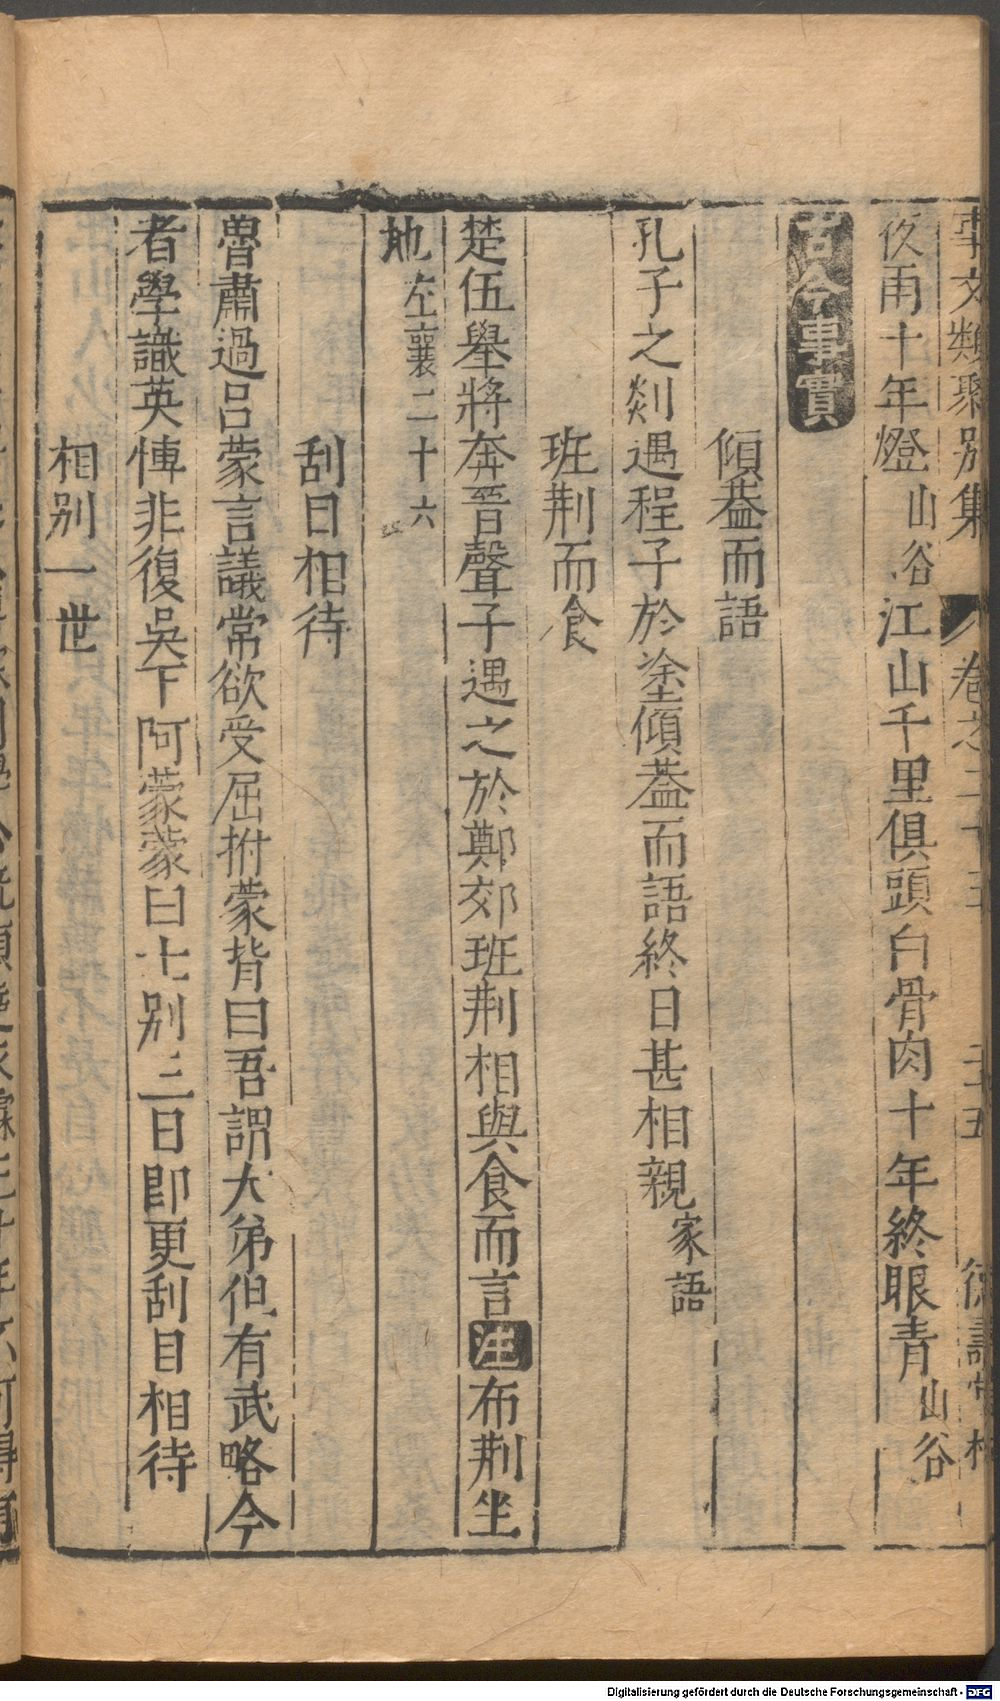 事文類聚別集 卷之二十五 三十五 德壽堂梓
夜雨十年燈山谷江山千里俱頭白骨肉十年終眼青山谷
古今事實
傾蓋而語
孔子之郯遇程子於塗傾蓋而語終日甚相親家語
班荆而食
楚伍舉將奔晉聲子遇之於鄭郊班荆相與食而言注布荆坐
地左襄二十六
刮目相待
魯肅過呂蒙言議常欲受屈拊蒙背曰吾謂大弟但有武略今
者學識英博非復吳下阿蒙蒙曰士別三日即更刮目相待
相别一世
Digitalisierung gefördert durch die Deutsche Forschungsgemeinschaft - DFG